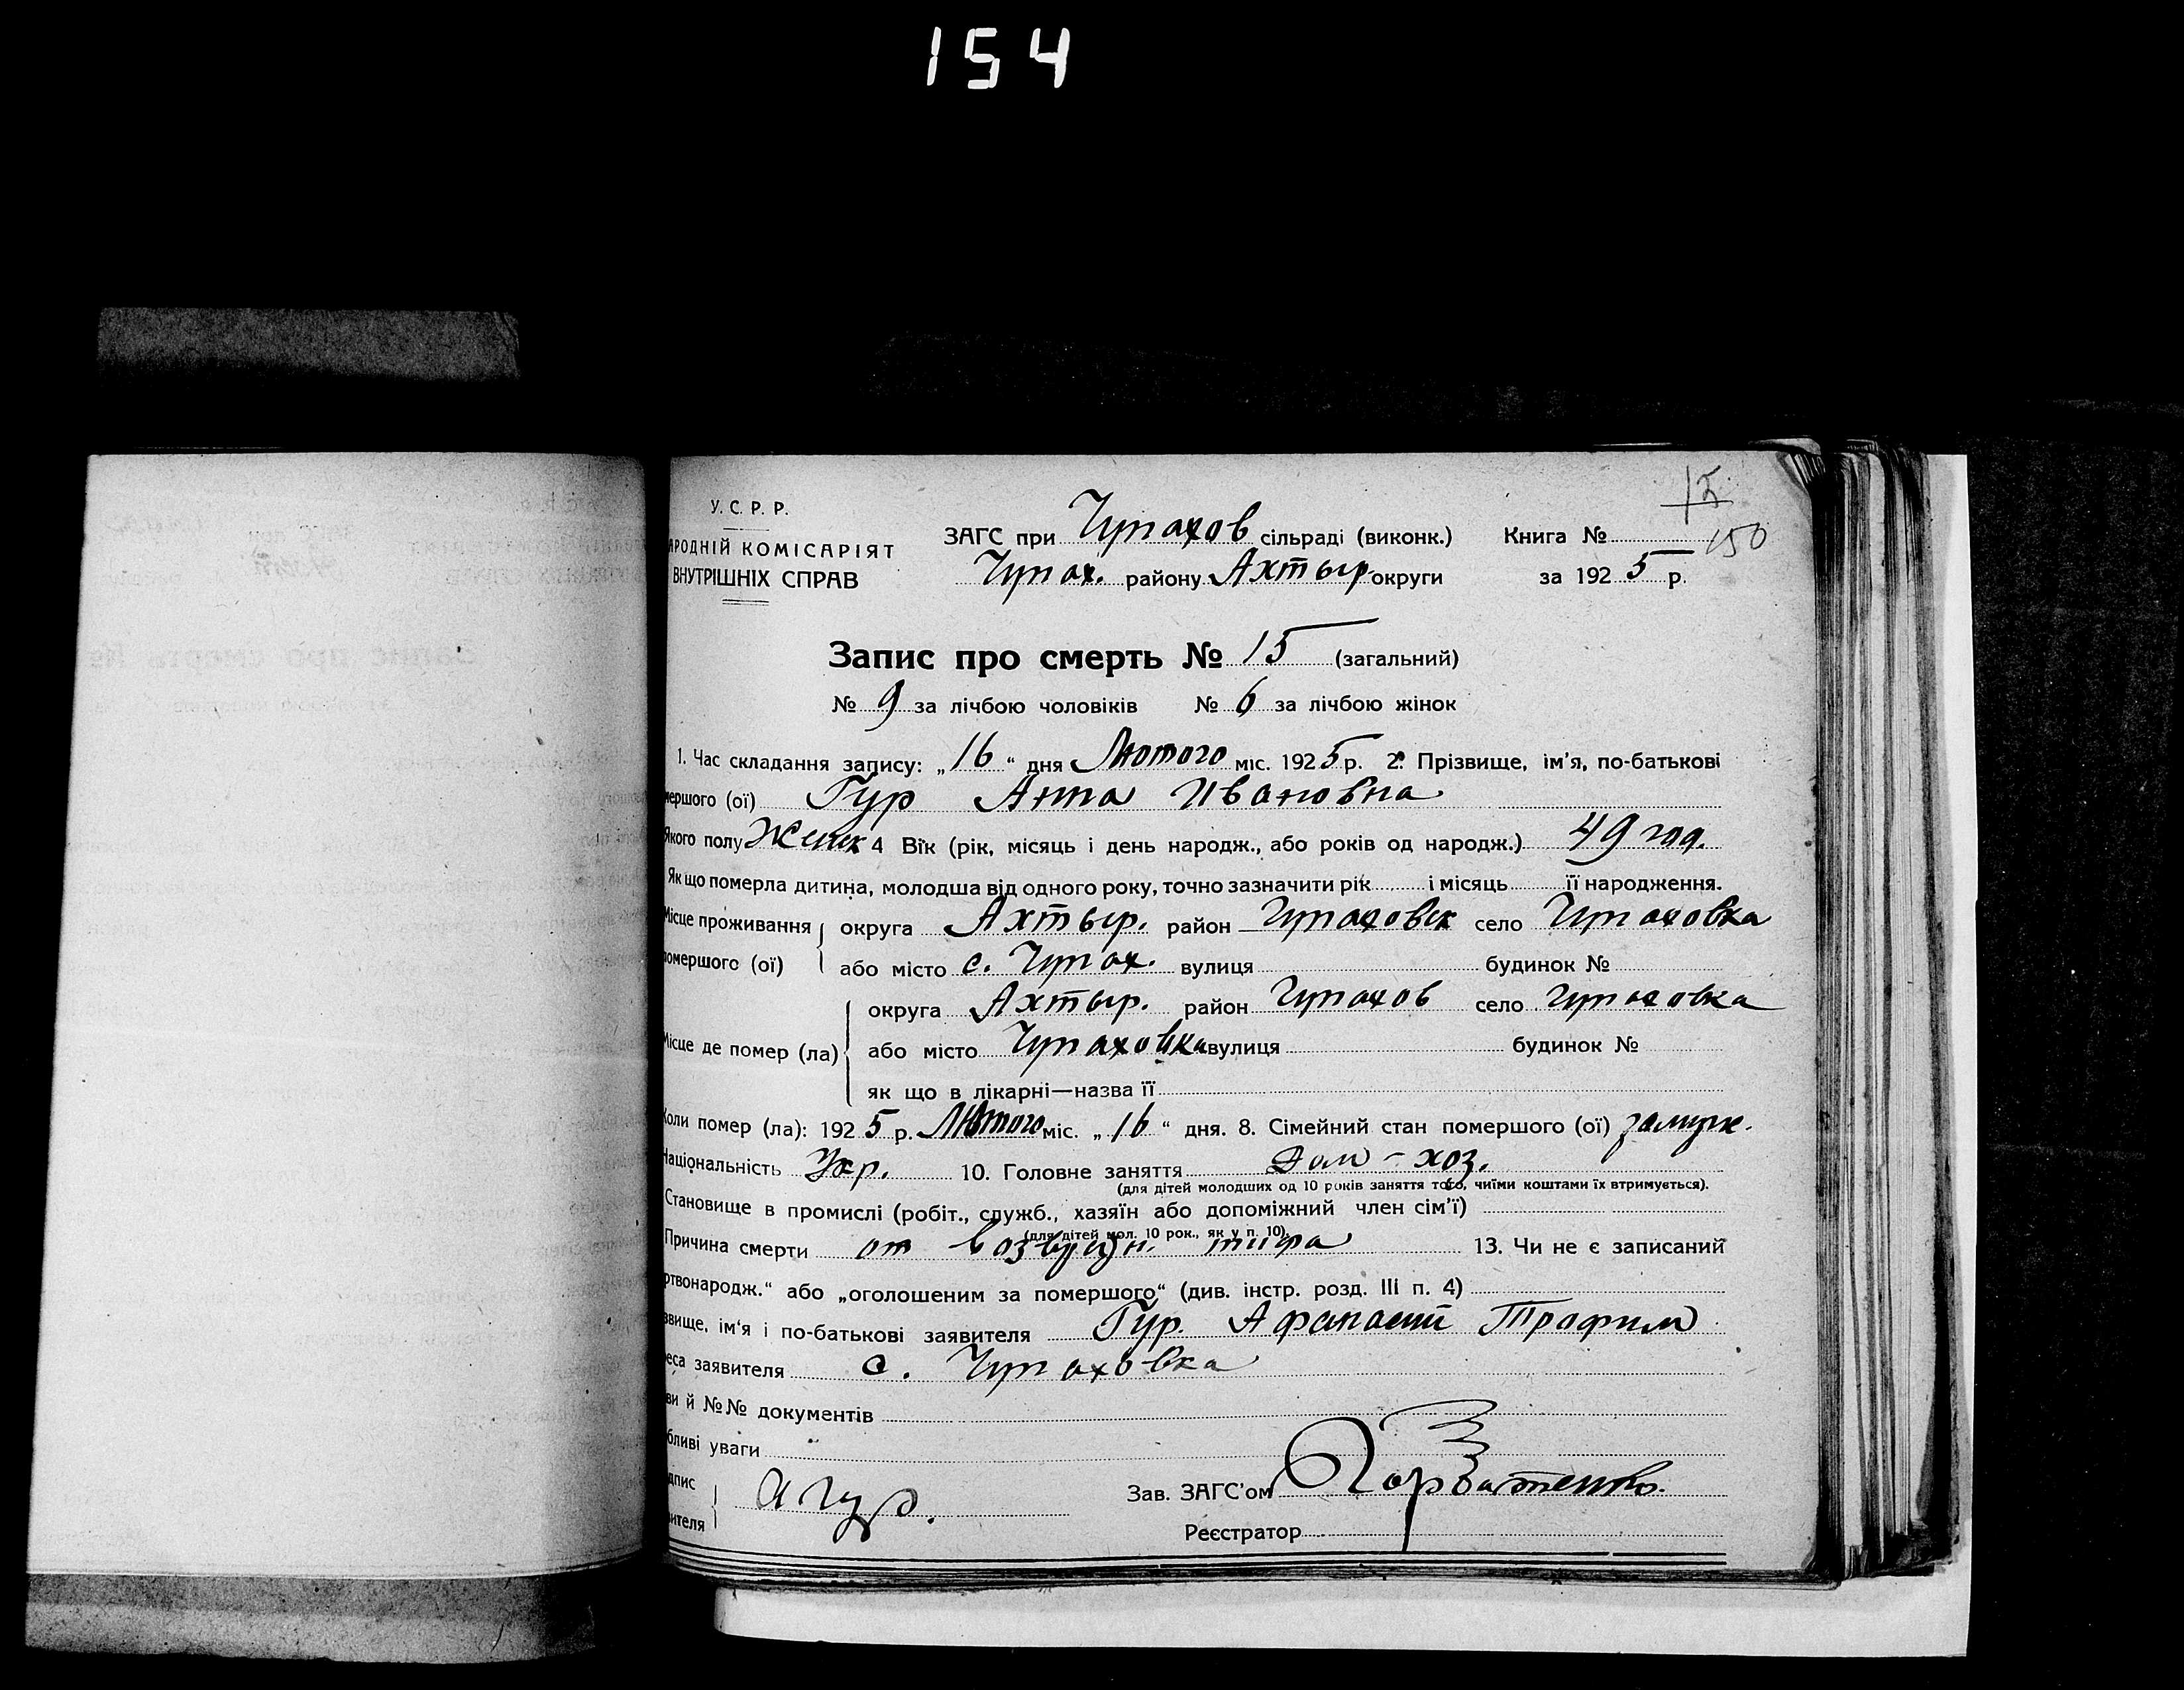 154
15
150
У. С. Р. Р.
АРОДНІЙ КОМІСАРІЯТ
ВНУТРІШНІХ СПРАВ
ЗАГС при Чупахов сільраді (виконк.) Книга №
Чупах. району Ахтыр. округи за 1925 р.
Запис про смерть № 15 (загальний)
№ 9 за лічбою чоловіків № 6 за лічбою жінок
1. Час складання запису: „16“ дня Лютого міс. 1925 р. 2. Прізвище, ім'я, по-батькові
мершого (ої) Гур Анна Ивановна
Якого полу Женск 4 Вік (рік, місяць і день народж., або років од народж.) 49 год.
Як що померла дитина, молодша від одного року, точно зазначити рік і місяць її народження.
Місце проживання округа Ахтыр. район Чупаховск село Чупаховка
помершого (ої) або місто с. Чупах. вулиця будинок №
округа Ахтыр. район Чупахов село Чупаховка
Місце де помер (ла) або місто Чупаховка вулиця будинок №
як що в лікарні—назва її
Коли помер (ла): 1925 р. Лютого міс. „16“ дня. 8. Сімейний стан помершого (ої) замуж.
Національність Укр. 10. Головне заняття Дом-хоз.
(для дітей молодших од 10 років заняття того, чиїми коштами їх втримується).
Становище в промислі (робіт., служб., хазяїн або допоміжний член сім'ї)
(для дітей мол. 10 рок., як у п. 10).
Причина смерти от возвратн. тифа 13. Чи не є записаний
ртвонародж.“ або „оголошеним за помершого“ (див. інстр. розд. III п. 4)
звище, ім'я і по-батькові заявителя Гур. Афанасий Трофим
еса заявителя с. Чупаховка
ви й №№ документів
бливі уваги
дпис
вителя А Гур.
Зав. ЗАГС'ом
Реєстратор